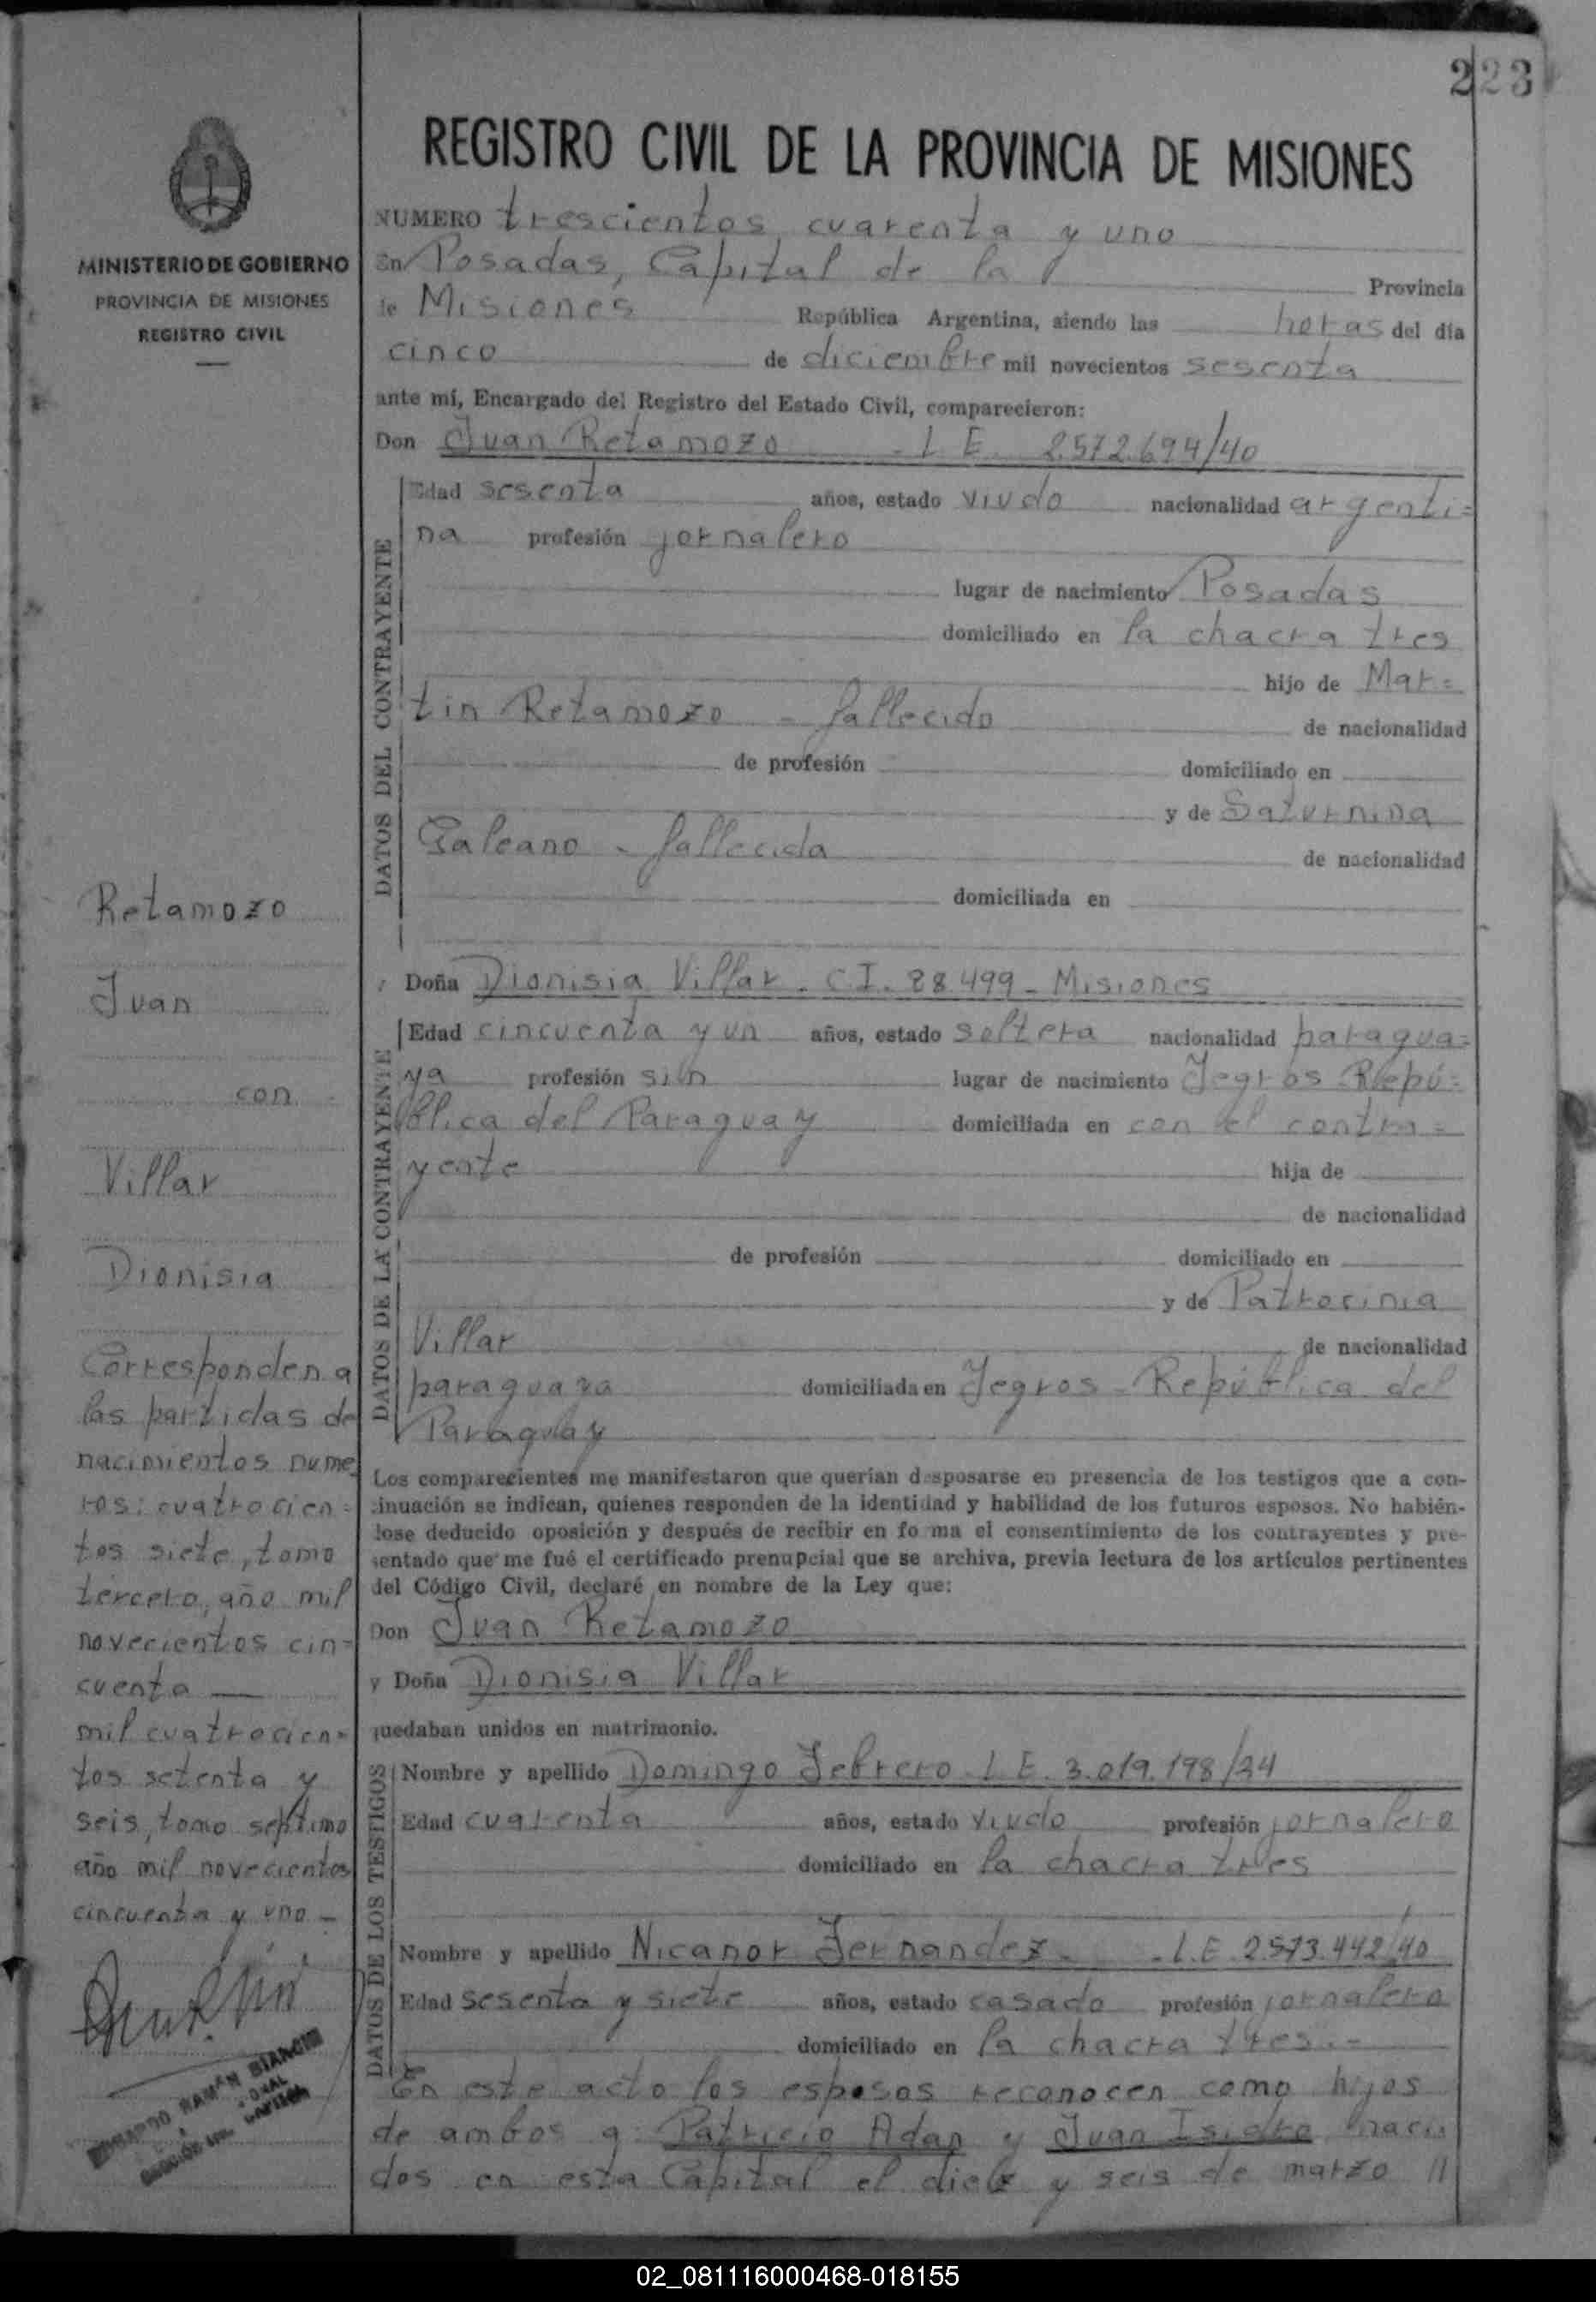 223
REGISTRO CIVIL DE LA PROVINCIA DE MISIONES
MINISTERIO DE GOBIERNO
PROVINCIA DE MISIONES
REGISTRO CIVIL
NUMERO trescientos cuarenta y uno
En Posadas, Capital de la Provincia
de Misiones República Argentina, siendo las horas del día
cinco de diciembre mil novecientos sesenta
ante mí, Encargado del Registro del Estado Civil, comparecieron:
Don Juan Retamozo - L E 2.572.694/40
DATOS DEL CONTRAYENTE
Edad sesenta años, estado viudo nacionalidad argenti=
na profesión jornalero
lugar de nacimiento Posadas
domiciliado en la chacra tres
hijo de Mar=
tin Retamozo - fallecido de nacionalidad
de profesión domiciliado en
y de Saturnina
Galeano - fallecida de nacionalidad
domiciliada en
Doña Dionisia Villar - C.I. 28.499 - Misiones
DATOS DE LA CONTRAYENTE
Edad cincuenta y un años, estado soltera nacionalidad paragua=
ya profesión sin lugar de nacimiento Jegros Repú=
blica del Paraguay domiciliada en con el contra=
yente hija de
de nacionalidad
de profesión domiciliado en
y de Patrocinia
Villar de nacionalidad
paraguaya domiciliada en Jegros - República del
Paraguay
Los comparecientes me manifestaron que querían desposarse en presencia de los testigos que a con-
tinuación se indican, quienes responden de la identidad y habilidad de los futuros esposos. No habién-
dose deducido oposición y después de recibir en forma el consentimiento de los contrayentes y pre-
sentado que me fué el certificado prenupcial que se archiva, previa lectura de los artículos pertinentes
del Código Civil, declaré en nombre de la Ley que:
Don Juan Retamozo
y Doña Dionisia Villar
quedaban unidos en matrimonio.
DATOS DE LOS TESTIGOS
Nombre y apellido Domingo Febrero L E. 3.019.198/34
Edad cuarenta años, estado viudo profesión jornalero
domiciliado en la chacra tres
Nombre y apellido Nicanor Fernandez - - L.E 2.573.442/40
Edad sesenta y siete años, estado casado profesión jornalero
domiciliado en la chacra tres.-
En este acto los esposos reconocen como hijos
de ambos a: Patricio Adan y Juan Isidro naci
dos en esta Capital el diez y seis de marzo //
Retamozo
Juan
con
Villar
Dionisia
Corresponden a
las partidas de
nacimientos nume
ros: cuatrocien=
tos siete, tomo
tercero, año mil
novecientos cin=
cuenta —
mil cuatrocien=
tos setenta y
seis, tomo septimo
año mil novecientos
cincuenta y uno -
RAMÓN BIANCHI
02_081116000468-018155